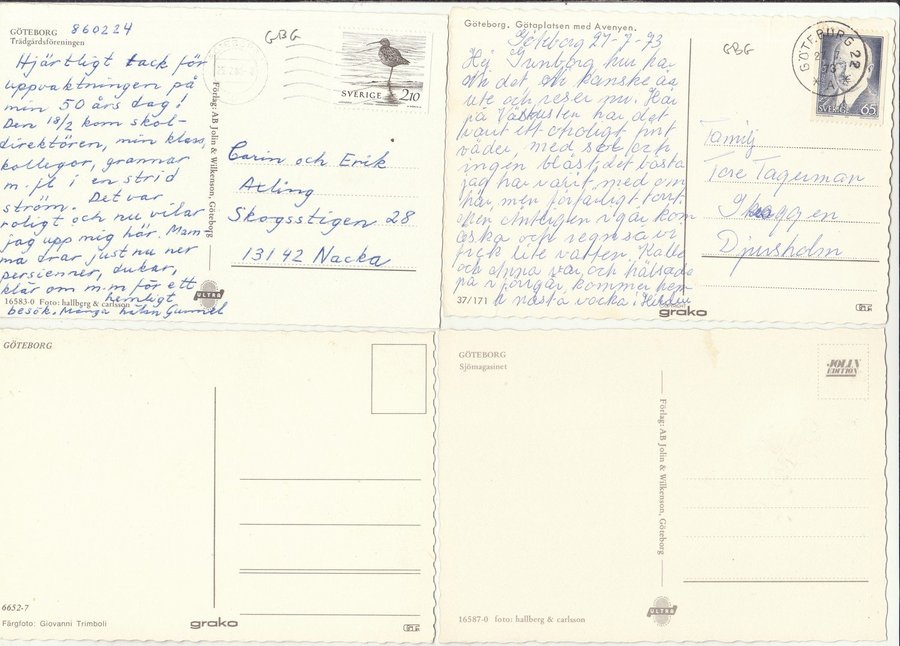 GÖTEBORG 860224
Trädgårdsföreningen
GBG
Hjärtligt tack för
uppvaktningen på
min 50 års dag!
Den 18/2 kom skol-
direktören, min klass,
kollegor, grannar
m. fl i en strid
ström. Det var
roligt och nu vilar
jag upp mig här. Mam
ma drar just nu ner
persienner, dukar,
klär om m.m för ett
hemligt
besök. Många häls n Gunnel
16583-0 Foto: hallberg & carlsson
ULTRA
Förlag: AB Jolin & Wilkenson, Göteborg
SVERIGE 210
Carin och Erik
Axling
Skogsstigen 28
131 42 Nacka
Göteborg. Götaplatsen med Avenyen.
Göteborg 27-7-73
GBG
Hej Gunborg hur har
ni det, ni kanske är
ute och reser nu. Här
på Västkusten har det
varit ett otroligt fint
väder, med sol och
ingen blåst, det bästa
jag har varit med om
här, men förfärligt torrt.
Men äntligen igår kom
åska och regn så vi
fick lite vatten. Kalle
och Anna var och hälsade
på i förrgår, kommer hem
nästa vecka.
37/171
COPYRIGHT
grako
GÖTEBORG 22
73
A
SVERIGE 65
Familj
Tore Tagerman
Djursholm
GÖTEBORG
6652-7
Färgfoto: Giovanni Trimboli
grako
GÖTEBORG
Sjömagasinet
JOLIN
EDITION
Förlag: AB Jolin & Wilkenson, Göteborg
16587-0 foto: hallberg & carlsson
ULTRA